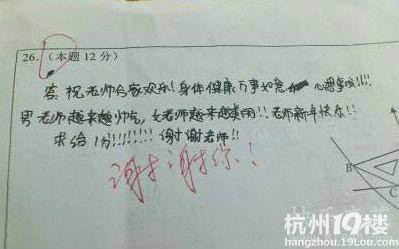 26.(本题12分)
答:祝老师合家欢乐!身体健康万事如意 心想事成!!!!
男老师越来越帅气,女老师越来越美丽!!老师新年快乐!!
求给1分!!!!!!!!谢谢老师!!
谢谢你!!
B
C
杭州19楼
hangzhou.19lou.com